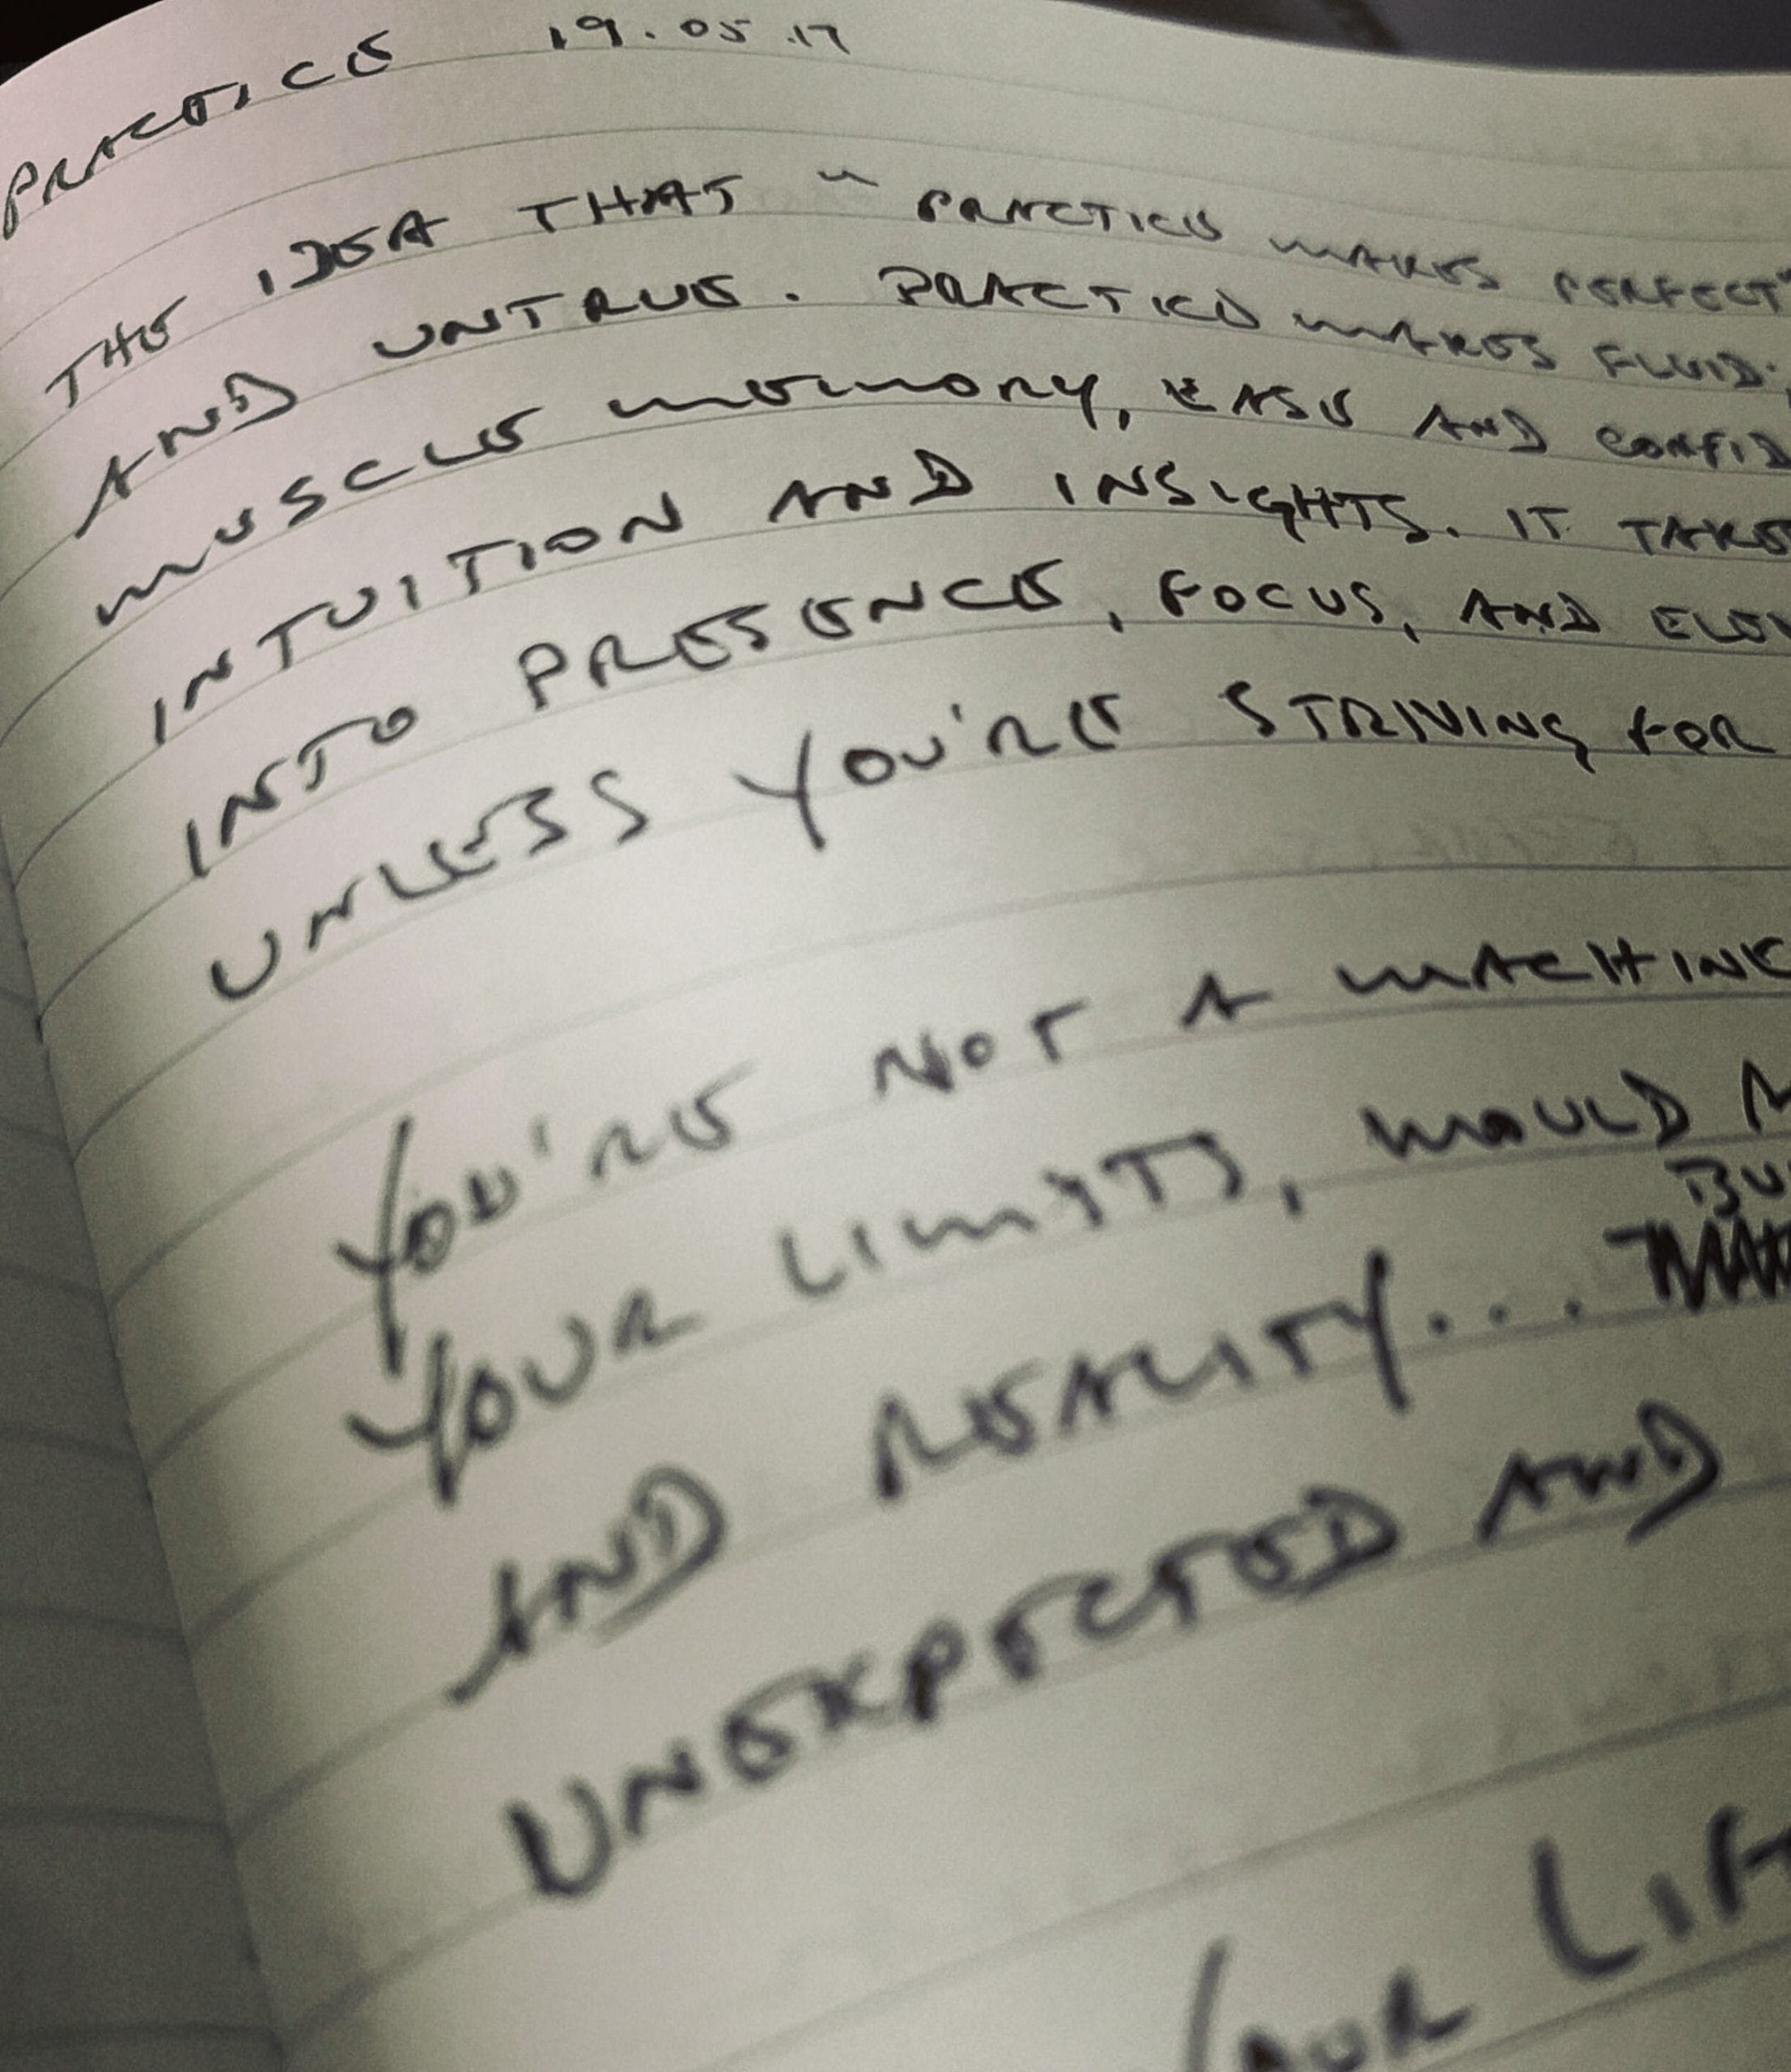 PRACTICE 19.05.17
THE IDEA THAT "PRACTICE MAKES PERFECT"
AND UNTRUE. PRACTICE MAKES FLUID.
MUSCLE MEMORY, EASE AND CONFID
INTUITION AND INSIGHTS. IT TAKE
INTO PRESENCE, FOCUS, AND ELEV
UNLESS YOU'RE STRIVING FOR
YOU'RE NOT A MACHINE
YOUR LIMITS, WOULD
BU
AND REALITY...
UNEXPECTED AND
YOUR LIF